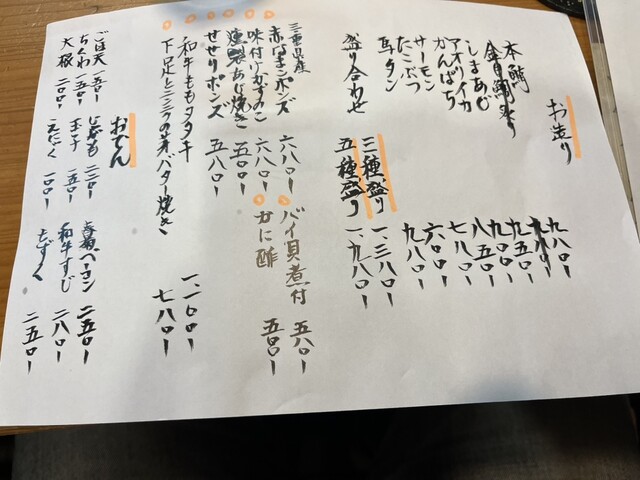 お造り
本鯛 九八〇ー
金目鯛炙り
しまあじ 九五〇ー
かんぱち 九〇〇ー
アオリイカ 八五〇ー
サーモン 七八〇ー
たこぶつ 六〇〇ー
馬タン 九八〇ー
盛り合わせ
三種盛り 一、三八〇ー
五種盛り 一、九八〇ー
三重県産
赤なまこポンズ 六八〇ー
味付けかずのこ 六八〇ー
燻製あじ焼き 五〇〇ー
せせりポンズ 五八〇ー
バイ貝煮付 五八〇ー
かに酢 五〇〇ー
和牛ももタタキ
下足とニンニクの芽バター焼き 七八〇ー
おでん
ごぼ天 一五〇ー
ちくわ 一五〇ー
大根 二〇〇ー
玉子 一五〇ー
こんにゃく 一〇〇ー
厚切ベーコン 二五〇ー
和牛すじ 二八〇ー
もずく 二五〇ー